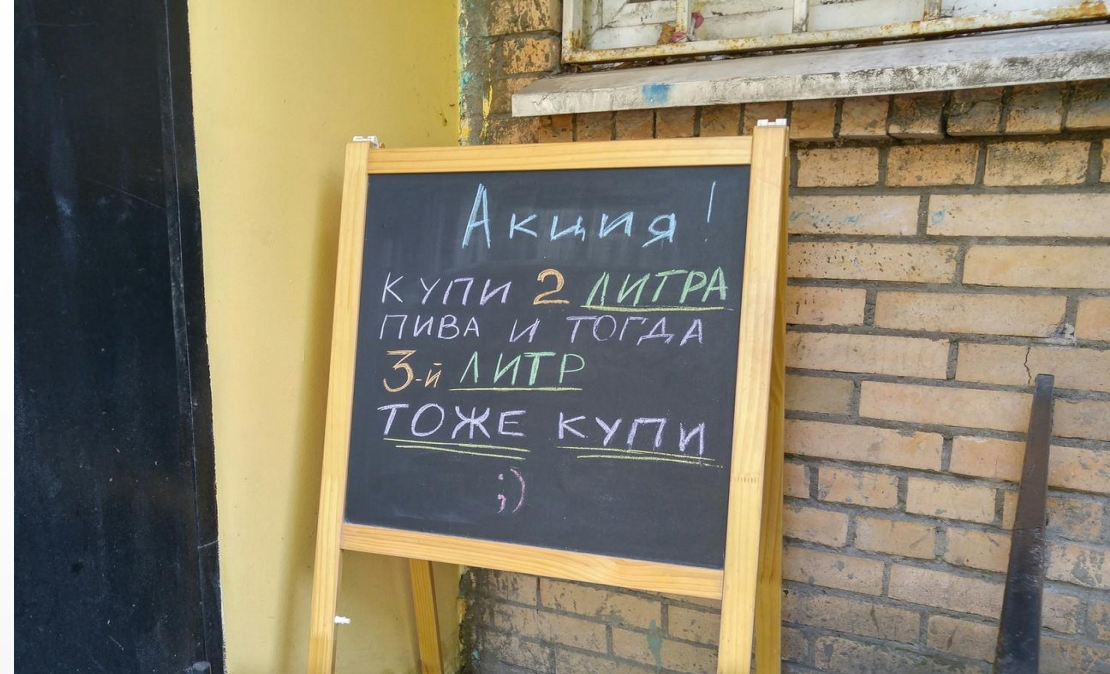 Акция!
КУПИ 2 ЛИТРА
ПИВА И ТОГДА
3-й ЛИТР
ТОЖЕ КУПИ
;)